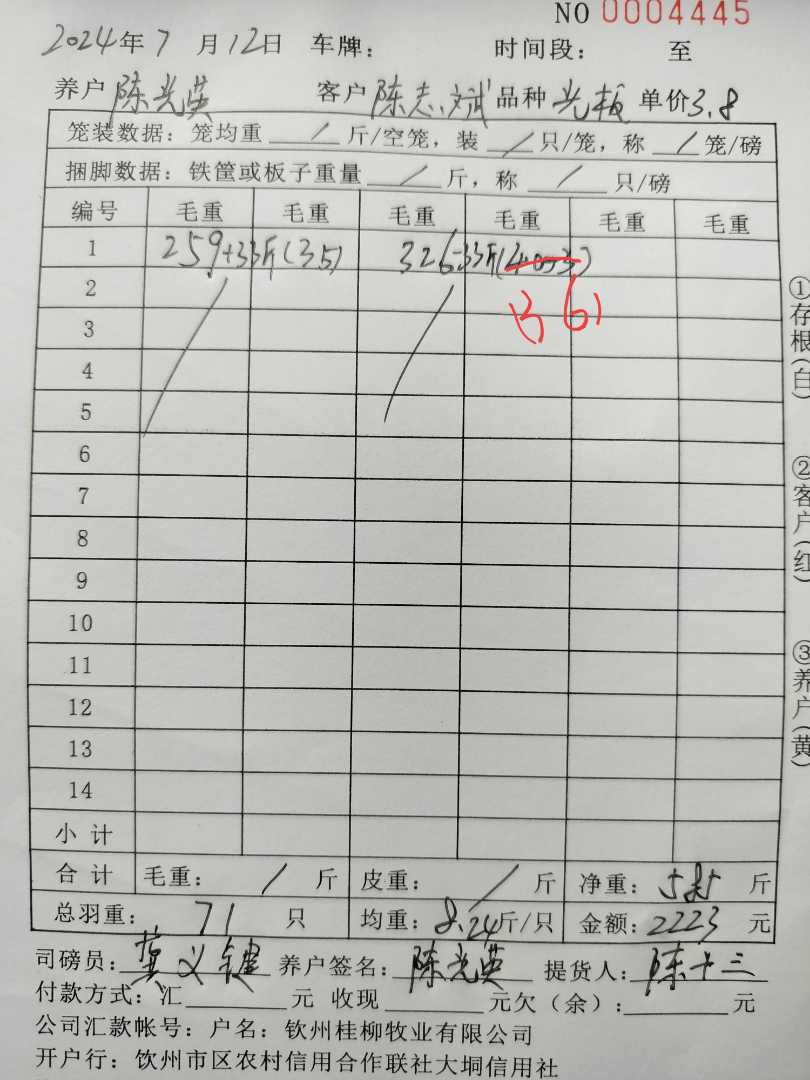 NO 0004445
2024年7月12日 车牌： 时间段： 至
养户 陈光英 客户 陈志斌 品种 光板 单价3.8
笼装数据：笼均重 / 斤/空笼，装 / 只/笼，称 / 笼/磅
捆脚数据：铁筐或板子重量 / 斤，称 / 只/磅
编号 毛重 毛重 毛重 毛重 毛重 毛重
1 259+33斤(35) 326-33斤
2
(36)
3
4
5
6
7
8
9
10
11
12
13
14
小计
合计 毛重： / 斤 皮重： / 斤 净重： 585 斤
总羽重： 71 只 均重：8.24斤/只 金额：2223 元
司磅员：龚义键 养户签名：陈光英 提货人：陈十三
付款方式：汇 元 收现 元欠（余）： 元
公司汇款帐号：户名：钦州桂柳牧业有限公司
开户行：饮州市区农村信用合作联社大垌信用社
①存根(白)
②客户(红)
③养户(黄)